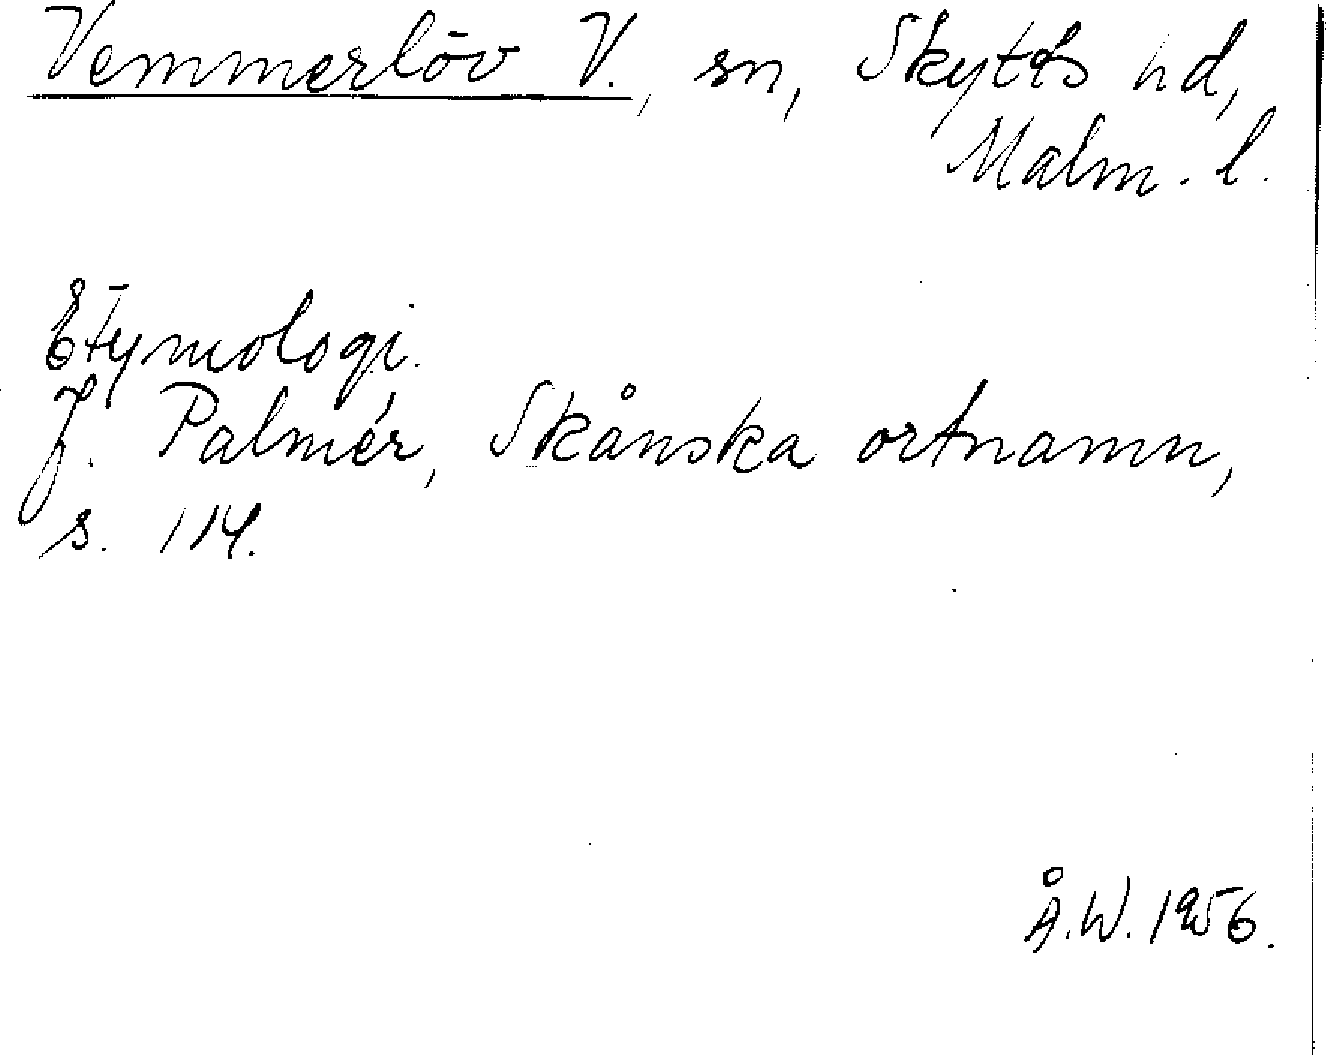 Vemmerlöv V., sn, Skytts hd,
Malm. l.
Etymologi.
J. Palmér, Skånska ortnamn,
s. 114.
Å.W. 1956.